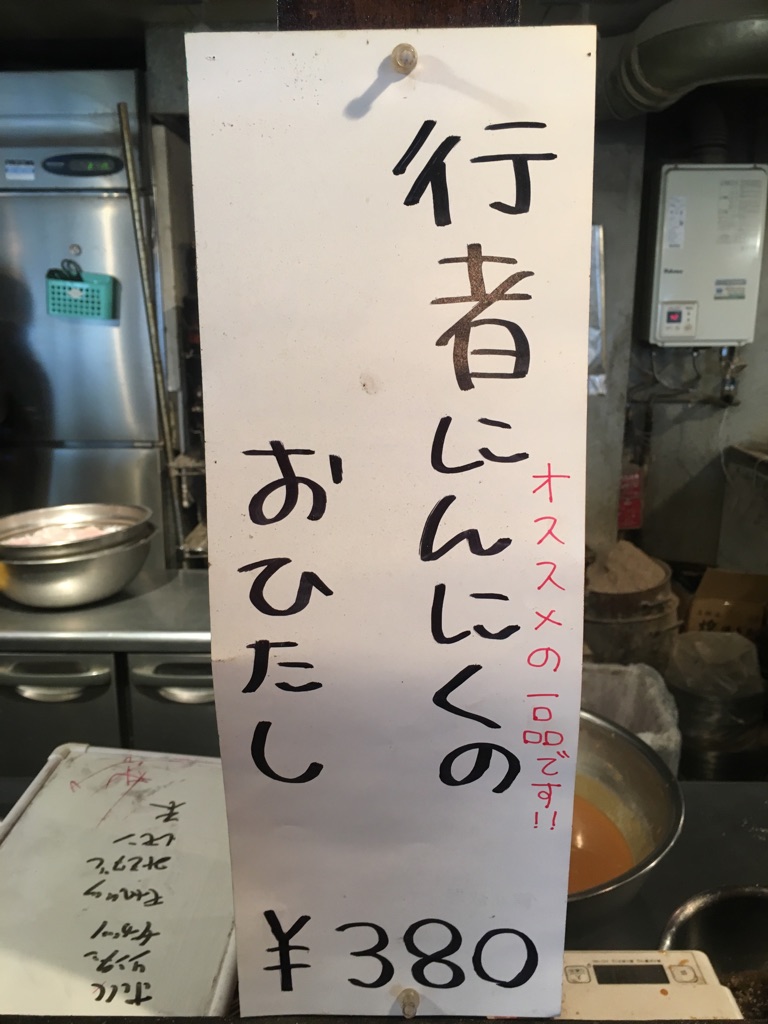 行者にんにくの
おひたし
オススメの一品です!!
¥380
レモン